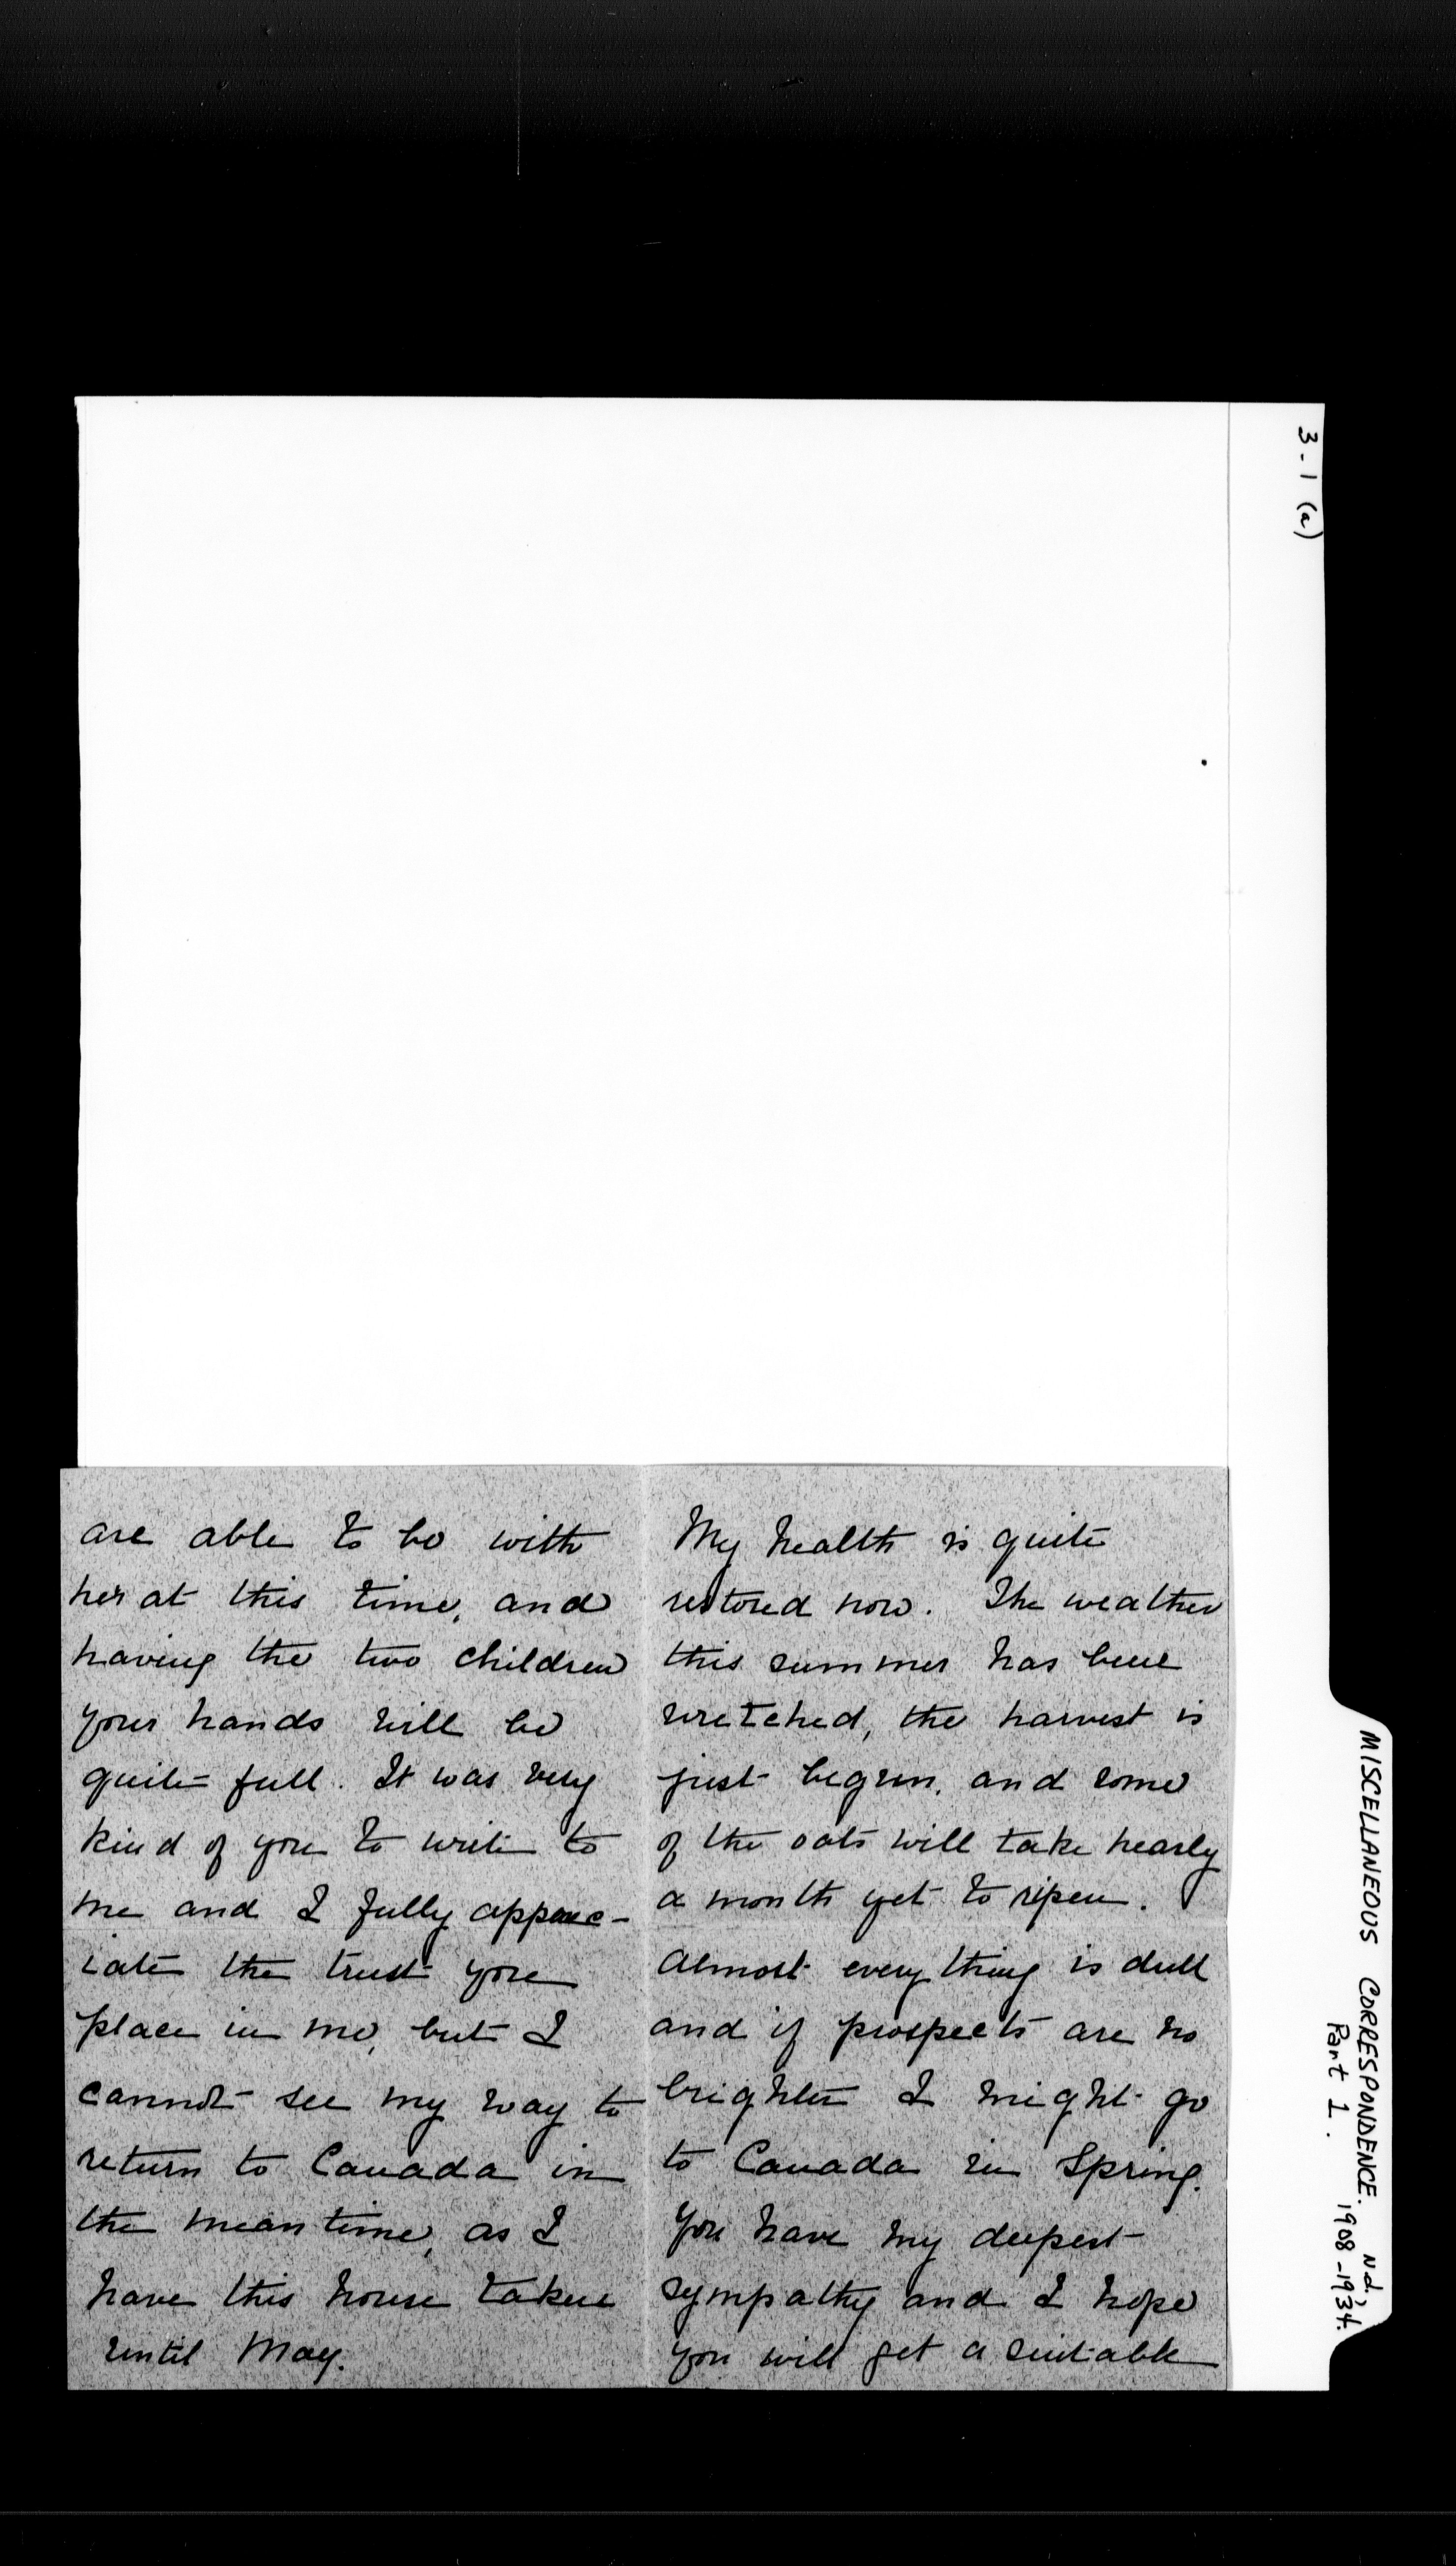 3-1 (a)
MISCELLANEOUS CORRESPONDENCE. n.d.,
Part 1. 1908-1934.
are able to be with
her at this time, and
having the two children
your hands will be
quite full. It was very
kind of you to write to
me and I fully apprec-
iate the trust you
place in me, but I
cannot see my way to
return to Canada in
the meantime, as I
have this house taken
until May.
My health is quite
restored now. The weather
this summer has been
wretched, the harvest is
just begun, and some
of the oats will take nearly
a month yet to ripen.
Almost everything is dull
and if prospects are no
brighter I might go
to Canada in Spring.
You have my deepest
sympathy and I hope
you will get a suitable